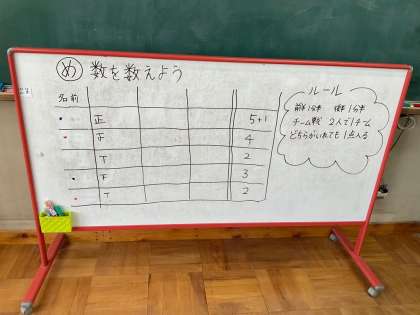 め 数を数えよう
名前
正 5+1
正 4
T 2
F 3
T 2
ルール
前半1分半 後半1分半
チーム戦 2人で1チーム
どちらがいれても1点入る